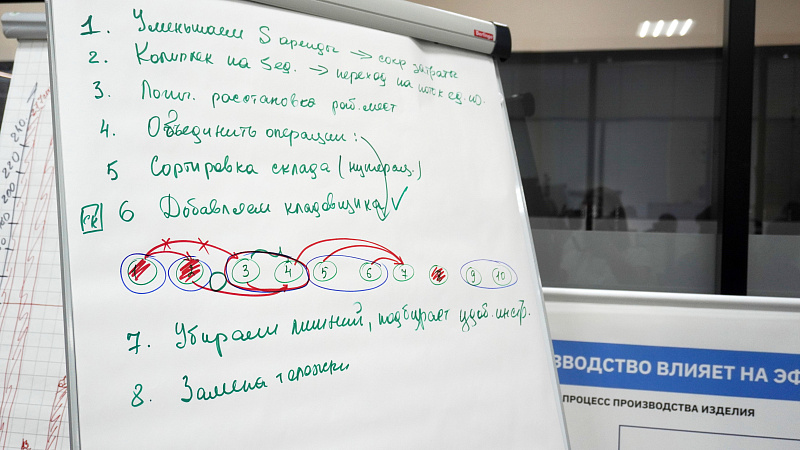 1. Уменьшаем S аренды → сокр затраты
2. Комплек на 5 ед. → переход на поток ед. изд.
3. Логич. расстановка раб. мест
4. Объединить операции:
5 Сортировка склада (нумерац.)
СК 6 Добавляем кладовщика ✓
3 4 5 6 7 9 10
7. Убираем лишний, подбирает удоб. инстр.
8. Замена тележки
240
220
200
ЗВОДСТВО ВЛИЯЕТ НА ЭФ
ПРОЦЕСС ПРОИЗВОДСТВА ИЗДЕЛИЯ